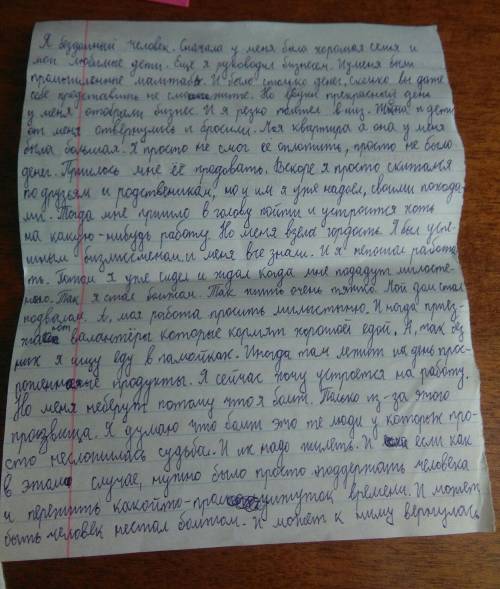 Я бездомный человек. Сначала у меня была хорошая семя и
мои любимые дети. Ещё я руководил бизнесом. И у меня были
промышленные маштабы. И было столько денег, сколько вы даже
себе представить не сможите. Но в один прекрасный день
у меня отобрали бизнес. И я резко полетел в низ. Жена и дети
от меня отвернулись и бросили. Моя квартира а она у меня
была большая. Я просто не смог её оплотить, просто не было
денег. Пришлось мне её продовать. Вскоре я просто скитался
по друзьям и родственикам, но и им я уже надоел, своими похода-
ми. Тогда мне пришло в голову пойти и устроится хоть
на какую-нибудь работу. Но меня взела гордость. Я был усп-
шным бизмесменом, и меня все знали. И я непошел работа-
ть. Потом я уже сидел и ждал когда мне пододут милосте-
ню. Так я стал бомжом. Так жить очень тяжко. Мой дом стал
подвалам. А, моя работа просить милыстиню. Иногда приез-
жают валантёры которые кормят хорошой едой. А так без
них я ищу еду в памойках. Иногда там лежит на день прос-
роченные продукты. Я сейчас хочу устроется на работу.
Но меня неберут потому что я бомж. Только из-за этого
прозвища. Я думаю что бомж это те люди у которых про-
сто несложилась судьба. И их надо жилеть. И если как
в этом случае, нужно было просто поддержать человека
и пережить какойто- промижуток времени. И может
быть человек нестал бомжом. И может к нему вернулась